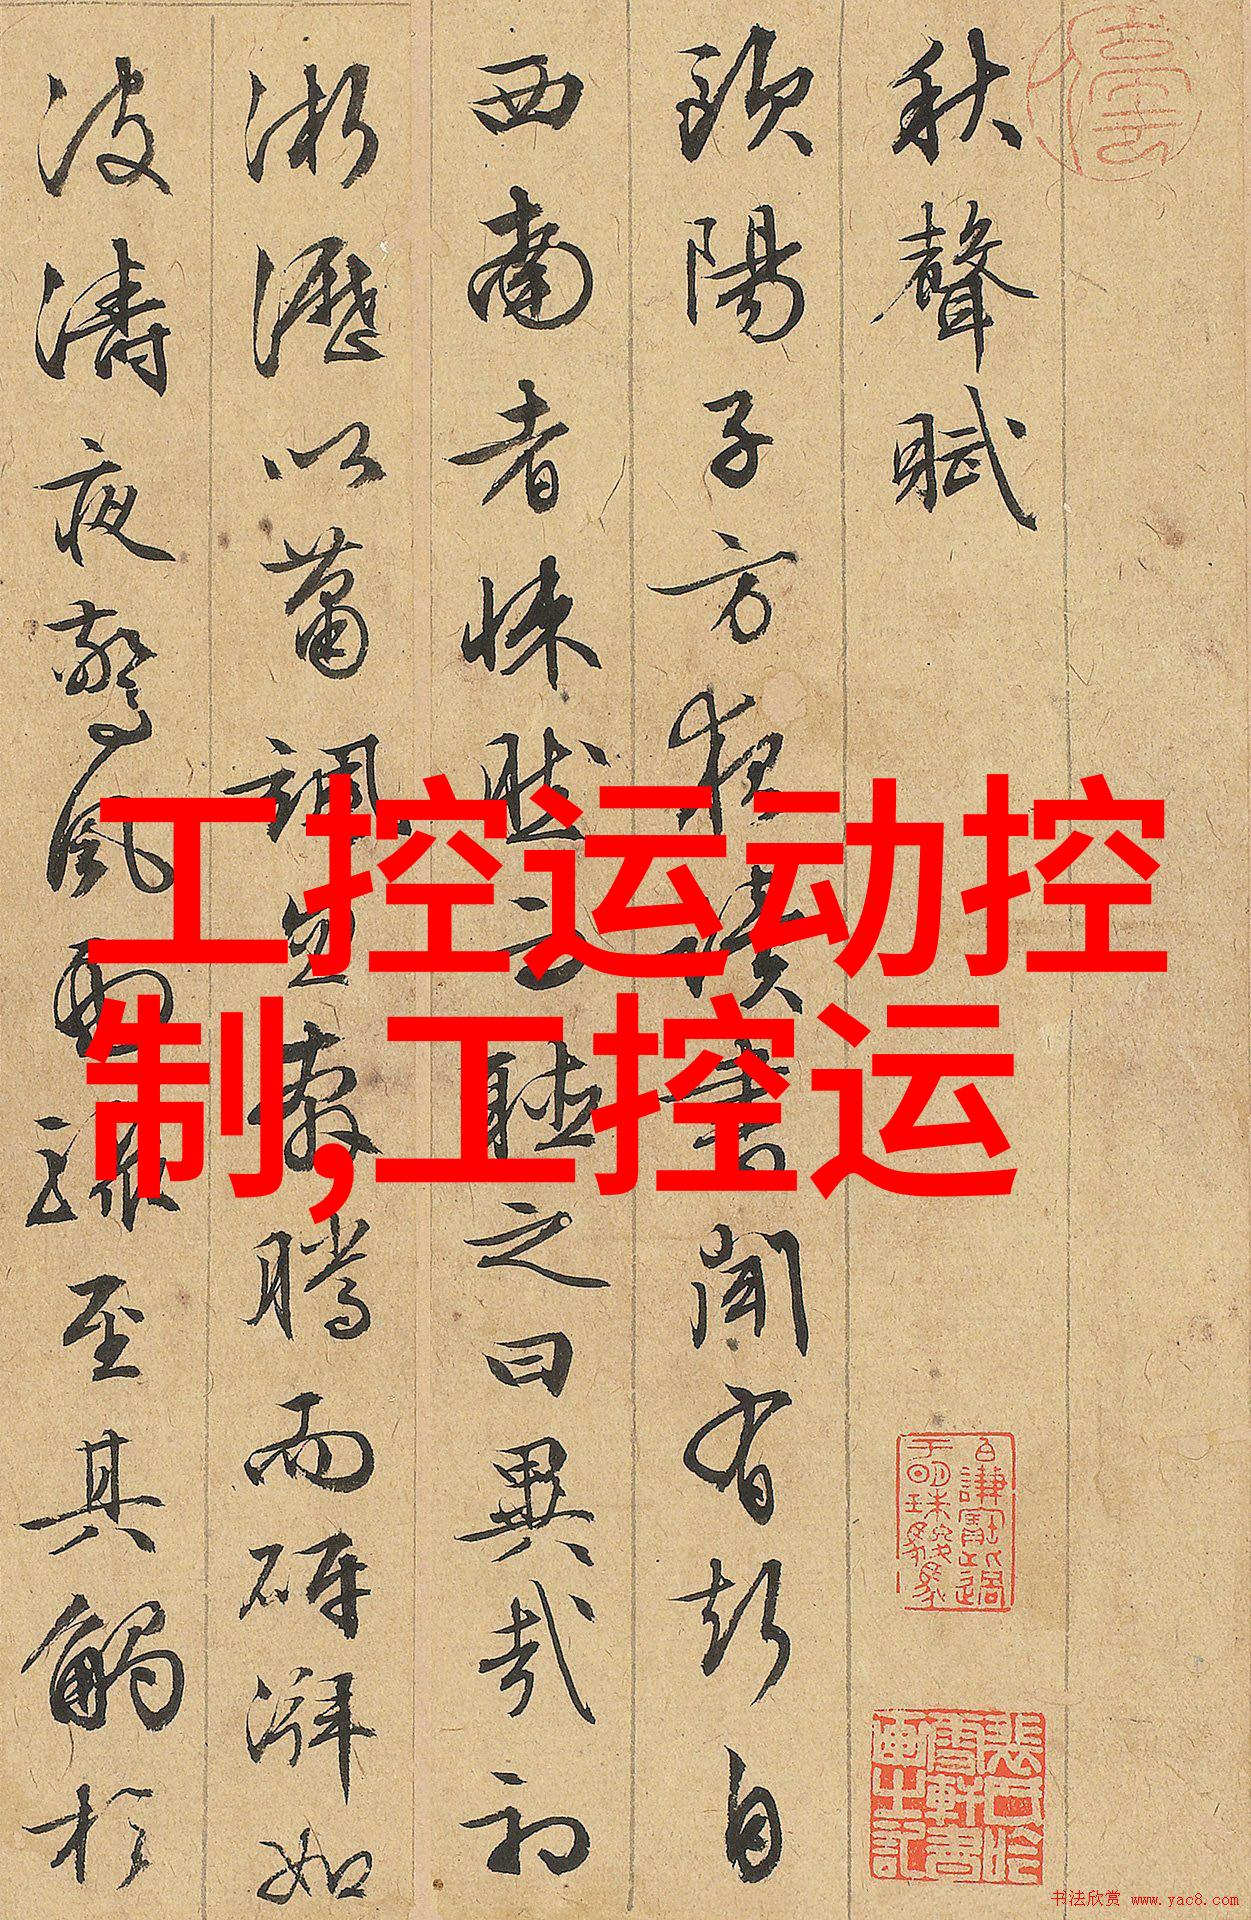 秋聲賦
歐陽子方夜讀書聞有聲自
西南者悚然而聽之曰異哉初
淅瀝以蕭颯忽奔騰而砰湃如
波濤夜驚風雨驟至其觸於
工控运动控
制,工控运
书法欣赏 www.yac8.com